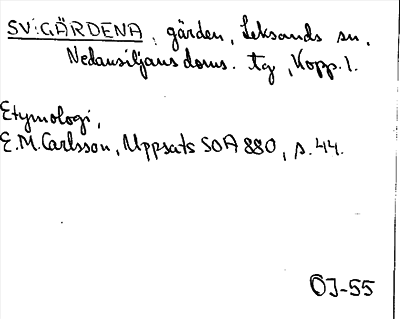 SV:GÄRDENA, gärden, Leksands sn,
Nedansiljans doms. tg, Kopp. l.
Etymologi,
E.M. Carlsson, Uppsats SOA 880, s. 44.
ÖJ-55